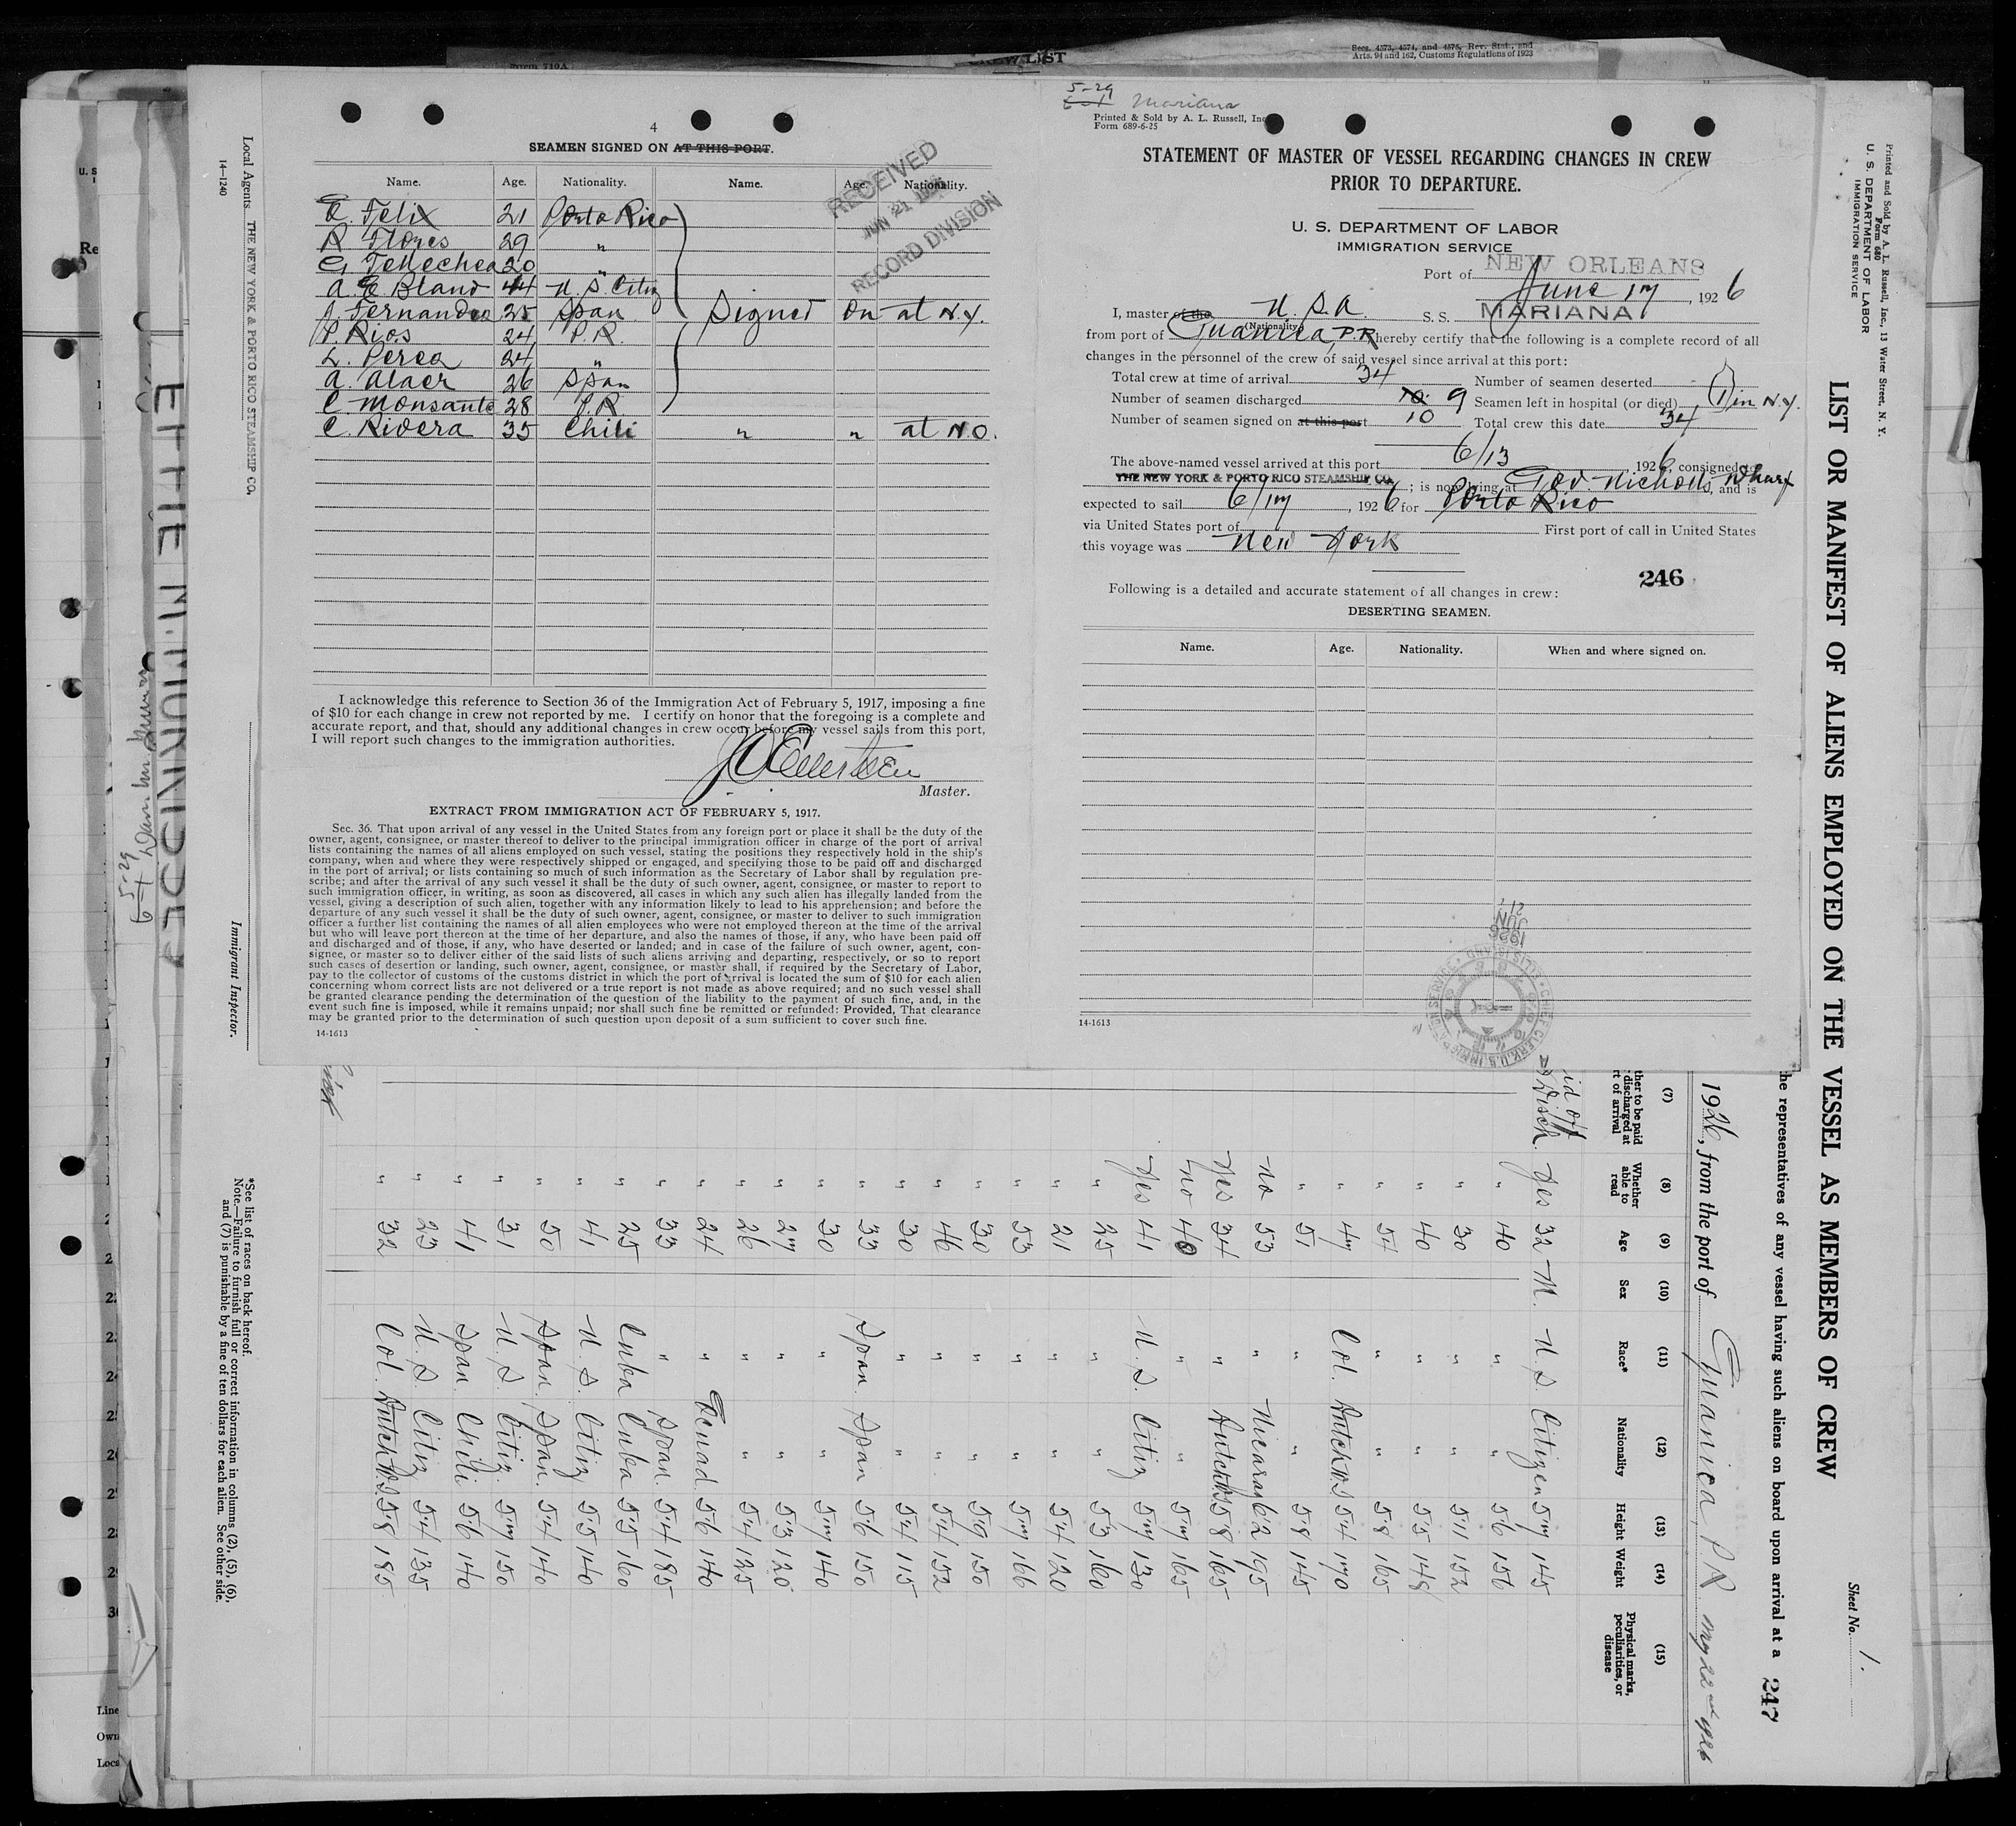 CREW LIST
Secs. 4573, 4574, and 4576, Rev. Stat., and
Arts. 94 and 162, Customs Regulations of 1923
4
SEAMEN SIGNED ON AT THIS PORT.
RECEIVED
JUN 21 1926
RECORD DIVISION
Name. Age. Nationality. Name. Age. Nationality.
E. Felix 21 Porto Rico
R Flores 29 "
G. Tellechea 20 "
A. E Bland 44 U. S. Citiz
J. Fernandez 25 Span Signed On at N.Y.
P. Rios 24 P. R.
L. Perea 24 "
A. Alaer 26 Span
C. Monsanto 28 P. R
C. Rivera 35 Chili " " at N.O.
I acknowledge this reference to Section 36 of the Immigration Act of February 5, 1917, imposing a fine
of $10 for each change in crew not reported by me. I certify on honor that the foregoing is a complete and
accurate report, and that, should any additional changes in crew occur before my vessel sails from this port,
I will report such changes to the immigration authorities.
Master.
EXTRACT FROM IMMIGRATION ACT OF FEBRUARY 5, 1917.
Sec. 36. That upon arrival of any vessel in the United States from any foreign port or place it shall be the duty of the
owner, agent, consignee, or master thereof to deliver to the principal immigration officer in charge of the port of arrival
lists containing the names of all aliens employed on such vessel, stating the positions they respectively hold in the ship's
company, when and where they were respectively shipped or engaged, and specifying those to be paid off and discharged
in the port of arrival; or lists containing so much of such information as the Secretary of Labor shall by regulation pre-
scribe; and after the arrival of any such vessel it shall be the duty of such owner, agent, consignee, or master to report to
such immigration officer, in writing, as soon as discovered, all cases in which any such alien has illegally landed from the
vessel, giving a description of such alien, together with any information likely to lead to his apprehension; and before the
departure of any such vessel it shall be the duty of such owner, agent, consignee, or master to deliver to such immigration
officer a further list containing the names of all alien employees who were not employed thereon at the time of the arrival
but who will leave port thereon at the time of her departure, and also the names of those, if any, who have been paid off
and discharged and of those, if any, who have deserted or landed; and in case of the failure of such owner, agent, con-
signee, or master so to deliver either of the said lists of such aliens arriving and departing, respectively, or so to report
such cases of desertion or landing, such owner, agent, consignee, or master shall, if required by the Secretary of Labor,
pay to the collector of customs of the customs district in which the port of arrival is located the sum of $10 for each alien
concerning whom correct lists are not delivered or a true report is not made as above required; and no such vessel shall
be granted clearance pending the determination of the question of the liability to the payment of such fine, and, in the
event such fine is imposed, while it remains unpaid; nor shall such fine be remitted or refunded: Provided, That clearance
may be granted prior to the determination of such question upon deposit of a sum sufficient to cover such fine.
14-1613
5-29
Mariana
Printed & Sold by A. L. Russell, Inc
Form 689-6-25
STATEMENT OF MASTER OF VESSEL REGARDING CHANGES IN CREW
PRIOR TO DEPARTURE.
U. S. DEPARTMENT OF LABOR
IMMIGRATION SERVICE
Port of NEW ORLEANS
June 17, 1926
I, master of the U.S.A. S. S. MARIANA
(Nationality)
from port of Guanica, P.R. hereby certify that the following is a complete record of all
changes in the personnel of the crew of said vessel since arrival at this port:
Total crew at time of arrival 34 Number of seamen deserted
Number of seamen discharged 10 9 Seamen left in hospital (or died) (1) in N.Y.
Number of seamen signed on at this port 10 Total crew this date 34
The above-named vessel arrived at this port 6/13, 1926, consigned to
THE NEW YORK & PORTO RICO STEAMSHIP CO.; is now lying at Gov. Nicholls Wharf, and is
expected to sail 6/17, 1926 for Porto Rico
via United States port of First port of call in United States
this voyage was New York
246
Following is a detailed and accurate statement of all changes in crew:
DESERTING SEAMEN.
Name. Age. Nationality. When and where signed on.
1926
JUN
14-1613
Local Agents THE NEW YORK & PORTO RICO STEAMSHIP CO.
14-1240
Immigrant Inspector.
*See list of races on back hereof.
Note.—Failure to furnish full or correct information in columns (2), (5), (6),
and (7) is punishable by a fine of ten dollars for each alien. See other side.
Printed and Sold by A. L. Russell, Inc., 13 Water Street, N. Y.
Form 680
U. S. DEPARTMENT OF LABOR
IMMIGRATION SERVICE
LIST OR MANIFEST OF ALIENS EMPLOYED ON THE VESSEL AS MEMBERS OF CREW
Sheet No. 1.
the representatives of any vessel having such aliens on board upon arrival at a 247
1926, from the port of Guanica, P R May 22nd 1926
(7) (8) (9) (10) (11) (12) (13) (14) (15)
Whether able to read Age Sex Race* Nationality Height Weight Physical marks, peculiarities, or disease
Disch. Yes 32 M. U. S. Citizen 57 145
" 40 " " 56 156
" 30 " " 511 152
" 40 " " 55 148
" 54 " " 58 165
" 47 Col. Dutch W.I 54 170
" 51 " " 58 145
No 53 " Nicarag 62 195
Yes 34 " Dutch W.I 58 165
No 40 " " 57 165
Yes 41 U. S. Citiz 57 130
" 25 " " 53 160
" 21 " " 54 120
" 53 " " 57 166
" 30 " " 59 150
" 46 " " 54 152
" 30 " " 54 115
" 33 Span. Span 56 150
" 30 " " 57 140
" 27 " " 53 120
" 26 " " 54 125
" 24 " Ecuad 56 140
" 33 " Span. 54 185
" 25 Cuba Cuba 55 160
" 41 U. S. Citiz 55 140
" 50 Span. Span. 54 140
" 31 U. S. Citiz. 57 150
" 41 Span. Chili 56 140
" 23 U. S. Citiz 54 135
" 32 Col. Dutch W.I 58 185